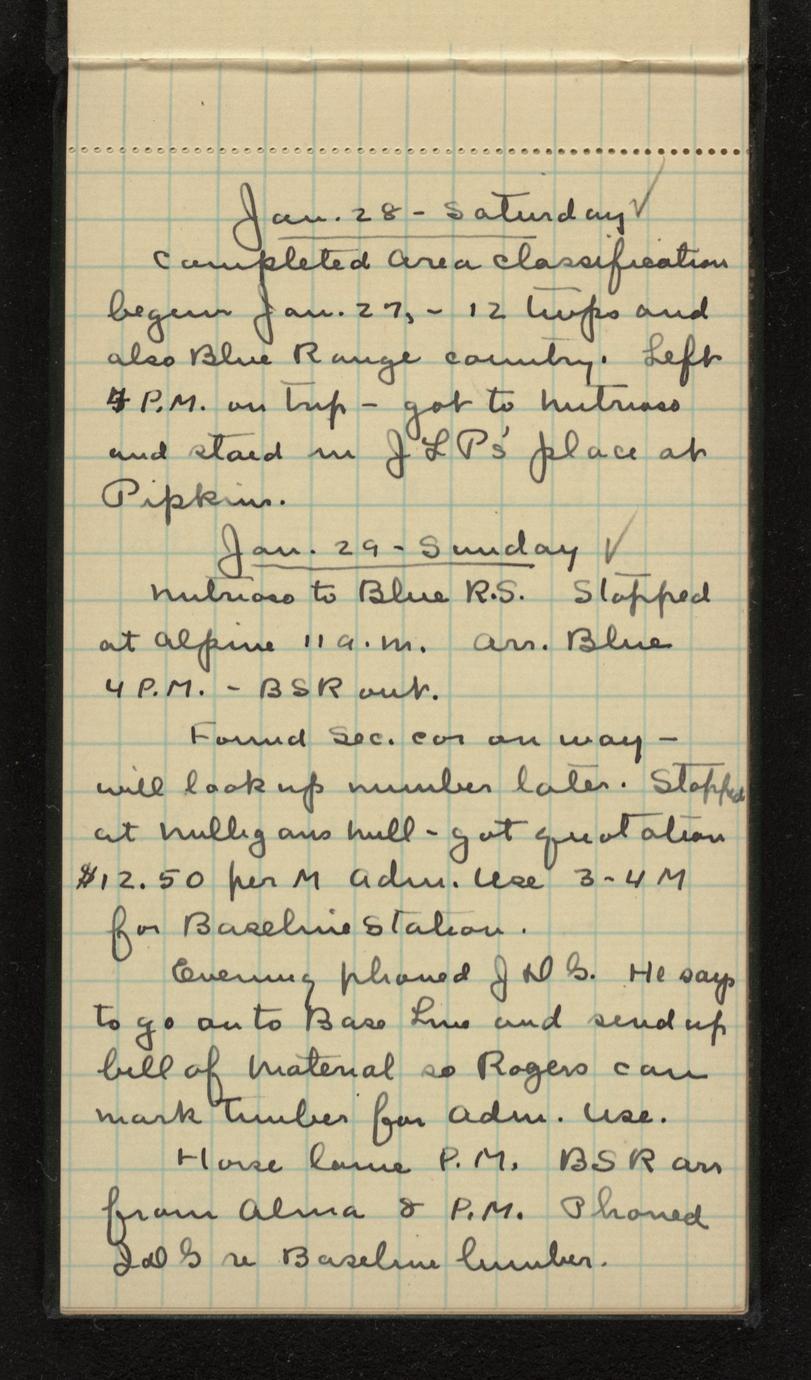 Jan. 28 - Saturday ✓
Completed area classification
begun Jan. 27, - 12 twps and
also Blue Range country. Left
4 P.M. on trip - got to Nutrioso
and staid in JLP's place at
Pipkins.
Jan. 29 - Sunday ✓
Nutrioso to Blue R.S. Stopped
at Alpine 11 a.m. Arr. Blue
4 P.M. - BSR out.
Found Sec. cor on way -
will look up number later. Stopped
at Mulligans Mill - got quotation
$12.50 per M Adm. Use 3-4 M
for Baseline Station.
Evening phoned JDG. He says
to go on to Base Line and send up
bill of material so Rogers can
mark timber for Adm. Use.
Horse lame P.M. BSR arr
from Alma 8 P.M. Phoned
JDG re Baseline lumber.